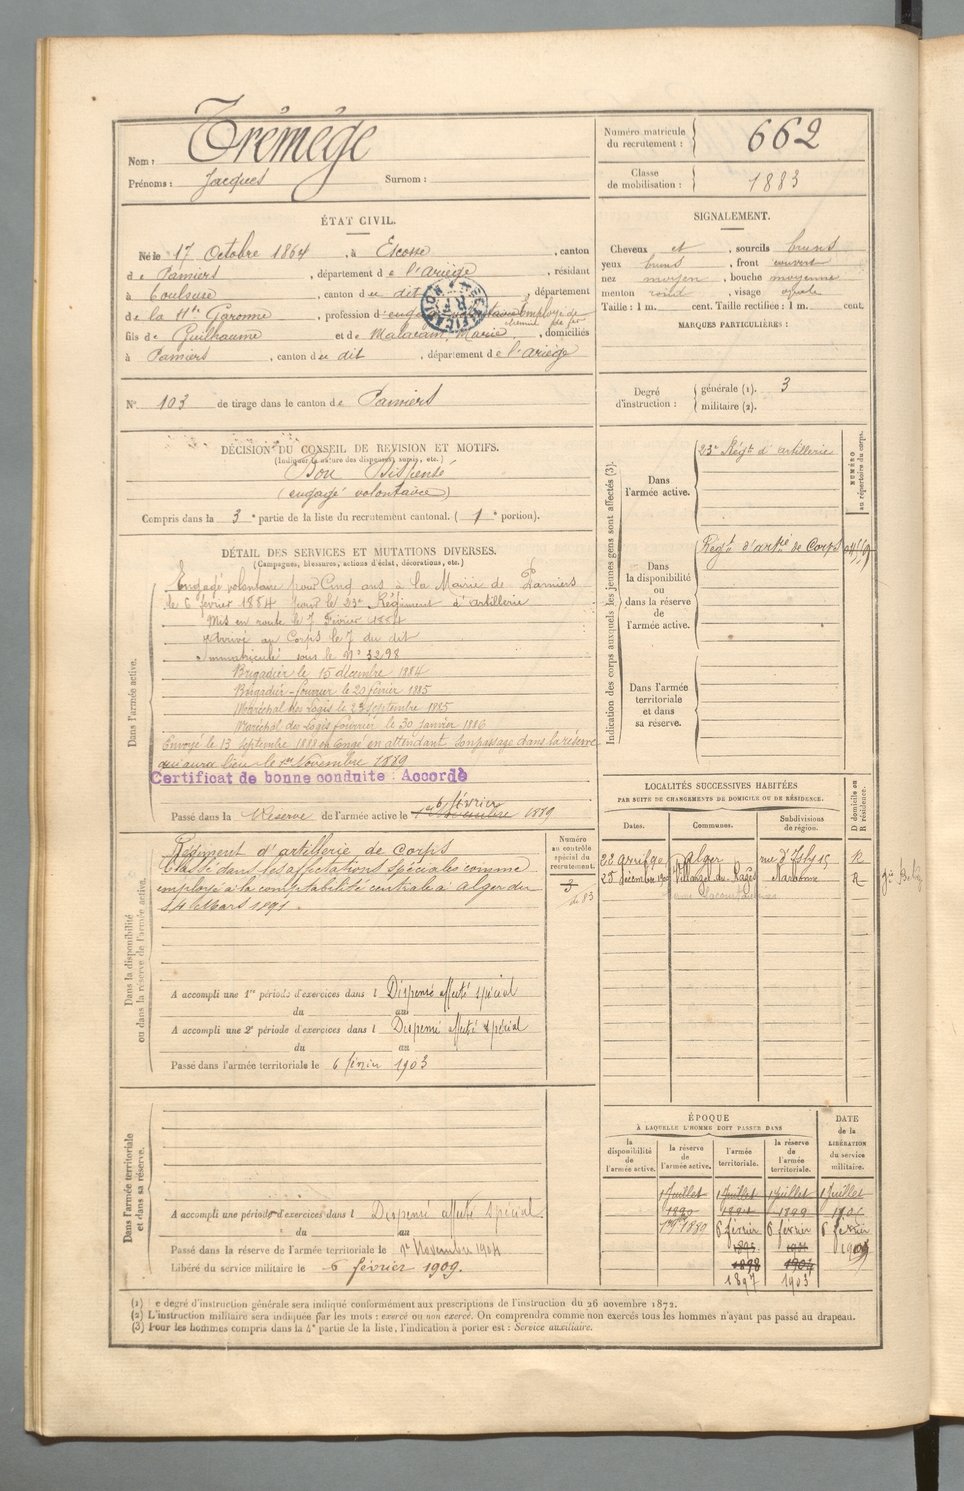 Nom : Trémège
Prénoms : Jacques Surnom :
Numéro matricule du recrutement : 662
Classe de mobilisation : 1883
ÉTAT CIVIL.
Né le 17 Octobre 1864, à Escosse, canton
de Pamiers, département de l'ariège, résidant
à Toulouse, canton du dit, département
de la Hte Garonne, profession d'engagé volontaire Employé de
chemin de fer
fils de Guilhaume et de Malaram, Marie, domiciliés
à Pamiers, canton du dit, département de l'ariège
N° 103 de tirage dans le canton de Pamiers
SIGNALEMENT.
Cheveux et, sourcils bruns
yeux bruns, front couvert
nez moyen, bouche moyenne
menton rond, visage ovale
Taille : 1 m. cent. Taille rectifiée : 1 m. cent.
MARQUES PARTICULIÈRES :
Degré d'instruction : générale (1). 3
militaire (2).
DÉCISION DU CONSEIL DE REVISION ET MOTIFS.
(Indiquer la nature des dispenses, sursis, etc.)
Bon Dispensé
(engagé volontaire)
Compris dans la 3e partie de la liste du recrutement cantonal. (1e portion).
DÉTAIL DES SERVICES ET MUTATIONS DIVERSES.
(Campagnes, blessures, actions d'éclat, décorations, etc.)
Dans l'armée active.
Engagé volontaire pour Cinq ans à la Mairie de Pamiers
le 6 février 1884 pour le 23e Régiment d'artillerie
Mis en route le 7 Février 1884
Arrivé au Corps le 7 du dit
Immatriculé sous le N° 3298
Brigadier le 15 décembre 1884
Brigadier-fourrier le 20 février 1885
Maréchal des Logis le 23 septembre 1885
Maréchal des Logis fourrier le 30 janvier 1886
Envoyé le 13 septembre 1888 en congé en attendant son passage dans la réserve
qui aura lieu le 1er Novembre 1889
Certificat de bonne conduite : Accordé
6 février
Passé dans la Réserve de l'armée active le 1889
Indication des corps auxquels les jeunes gens sont affectés (3).
NUMÉRO au répertoire du corps.
Dans l'armée active.
23e Régt d'artillerie
Dans la disponibilité ou dans la réserve de l'armée active.
Régt d'artrie de Corps
Dans l'armée territoriale et dans sa réserve.
LOCALITÉS SUCCESSIVES HABITÉES
PAR SUITE DE CHANGEMENTS DE DOMICILE OU DE RÉSIDENCE.
Dates. Communes. Subdivisions de région. D domicile ou R résidence.
Alger rue d'Isly 15 R
Narbonne R
Dans la disponibilité ou dans la réserve de l'armée active.
Numéro au contrôle spécial du recrutement.
Régiment d'artillerie de Corps
Classé dans les affectations spéciales comme
employé à la comptabilité centrale à Alger du
14 Mars 1891.
A accompli une 1re période d'exercices dans l Dispensé affecté spécial
du au
A accompli une 2e période d'exercices dans l Dispensé affecté spécial
du au
Passé dans l'armée territoriale le 6 février 1903
Dans l'armée territoriale et dans sa réserve.
A accompli une période d'exercices dans l Dispensé affecté spécial.
du au
Passé dans la réserve de l'armée territoriale le 1er Novembre 1904
Libéré du service militaire le 6 février 1909.
ÉPOQUE
À LAQUELLE L'HOMME DOIT PASSER DANS
la disponibilité de l'armée active. la réserve de l'armée active. l'armée territoriale. la réserve de l'armée territoriale.
DATE de la LIBÉRATION du service militaire.
1 Juillet 1 Juillet 1 Juillet 1 Juillet
1890 1899
6 février 6 février 6 février
1895 1909
1898 1904
1897 1903
(1) Le degré d'instruction générale sera indiqué conformément aux prescriptions de l'instruction du 26 novembre 1872.
(2) L'instruction militaire sera indiquée par les mots : exercé ou non exercé. On comprendra comme non exercés tous les hommes n'ayant pas passé au drapeau.
(3) Pour les hommes compris dans la 4e partie de la liste, l'indication à porter est : Service auxiliaire.